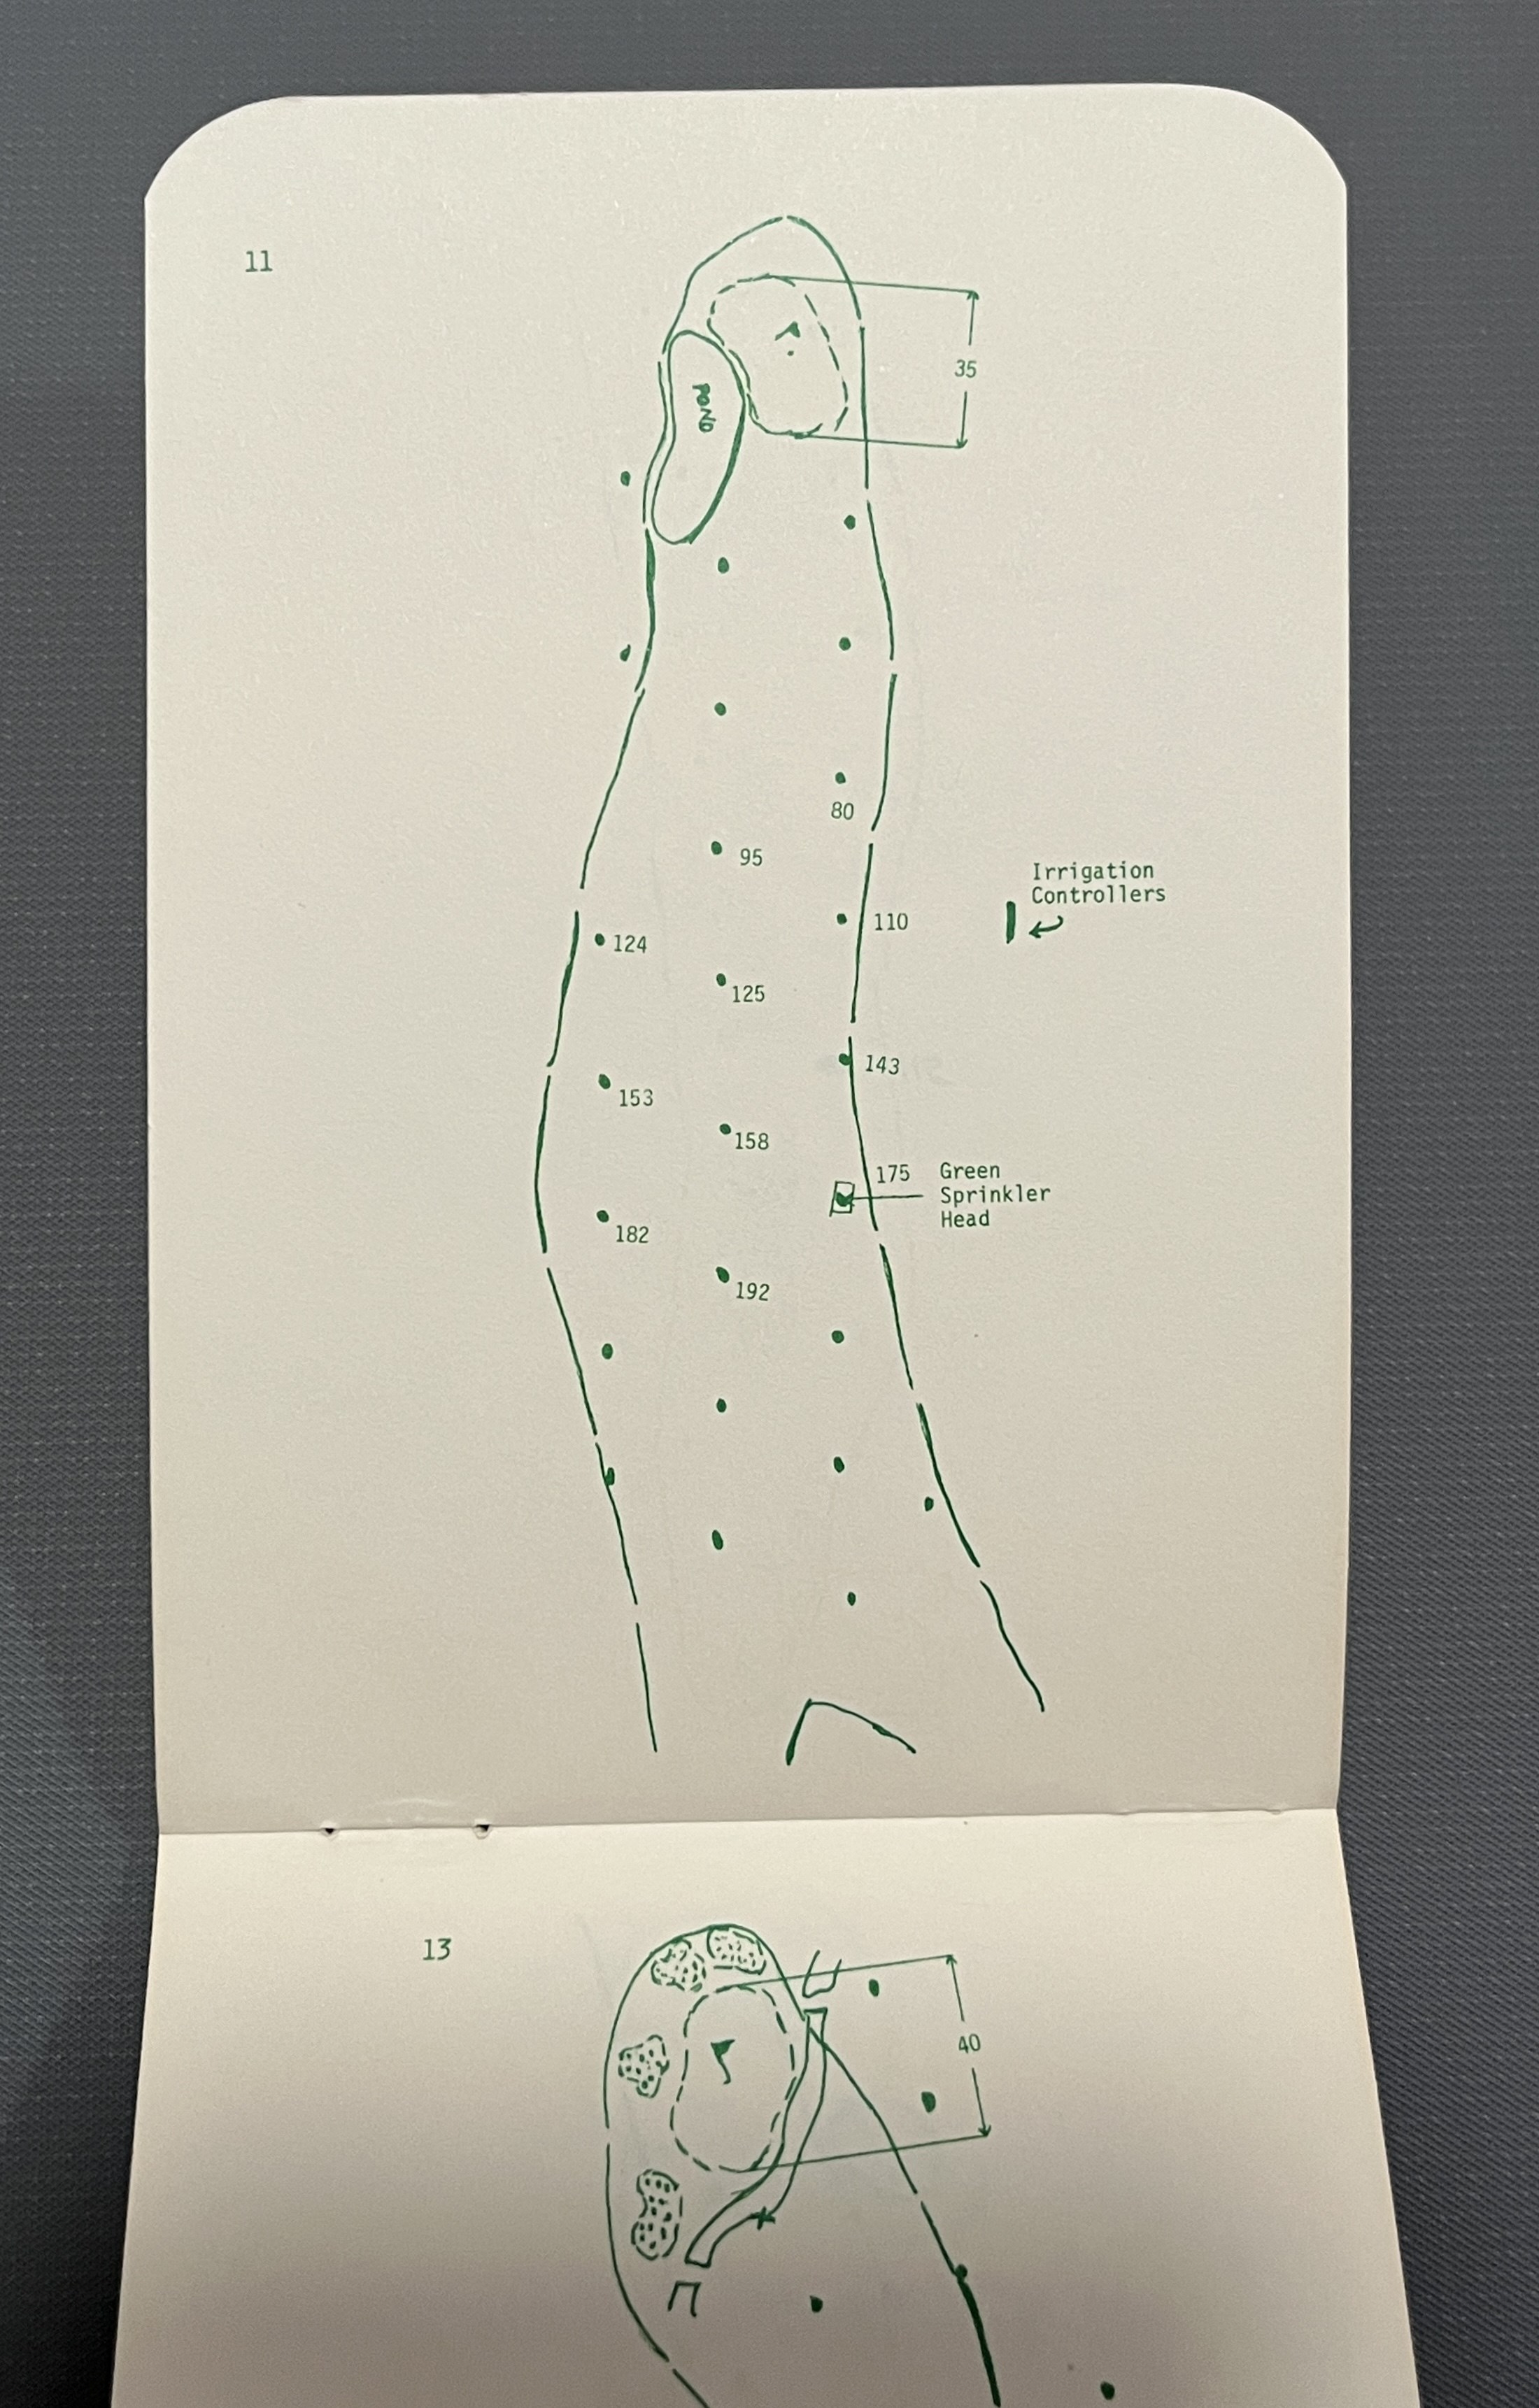 11
35
POND
80
95
Irrigation
Controllers
110
124
125
143
153
158
175
Green
Sprinkler
Head
182
192
13
40